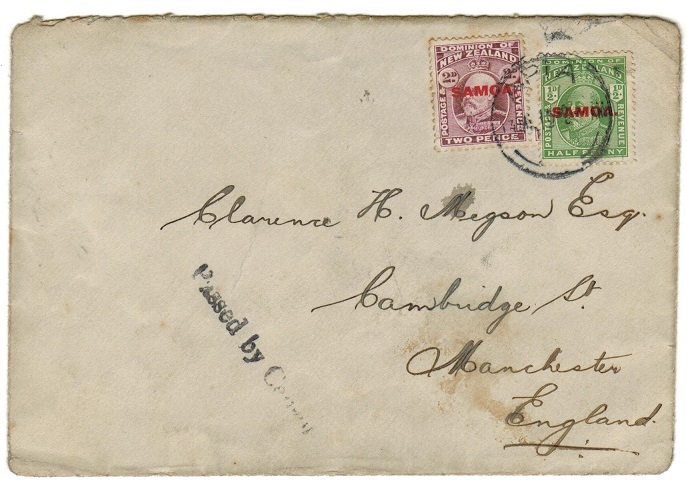 DOMINION OF
NEW ZEALAND
2D
SAMOA.
POSTAGE &
REVENUE
TWO PENCE
DOMINION OF
NEW ZEALAND
½D
½D
SAMOA.
POSTAGE &
REVENUE
HALFPENNY
Clarence H. Megson Esq.
Cambridge St.
Manchester
England.
Passed by Censor